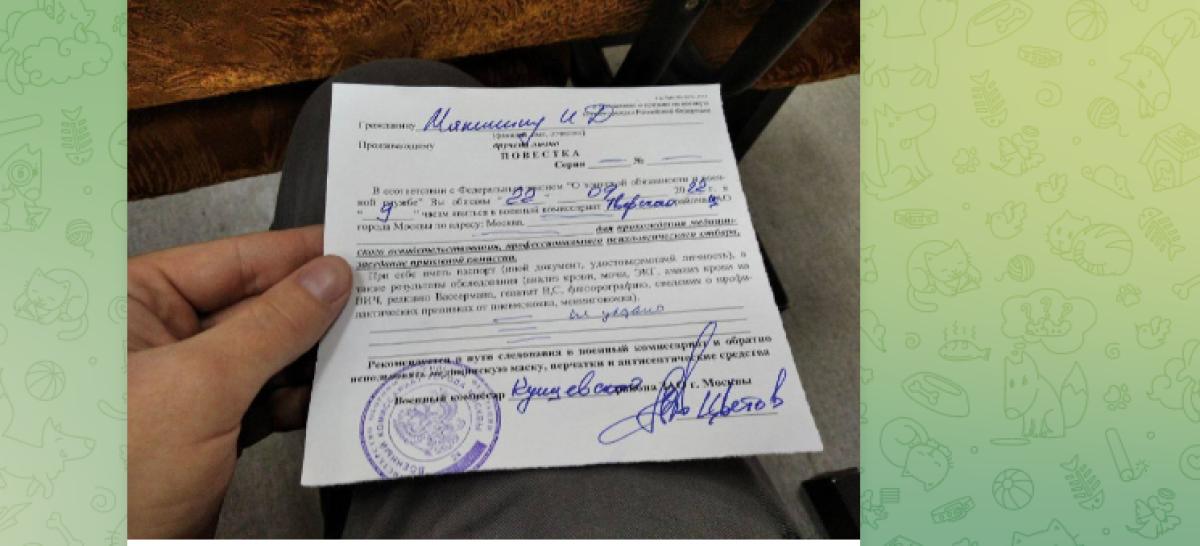 Гражданину Мякишину И Д
(фамилия, имя, отчество)
Проживающему
вручена лично
ПОВЕСТКА
Серия № 
В соответствии с Федеральным законом "О воинской обязанности и воен-
ной службе" Вы обязаны "22" 09 2022 г. к
"9" часам явиться в военный комиссариат Тверского района ЦАО
города Москвы по адресу: Москва,
для прохождения медицин-
ского освидетельствования, профессионального психологического отбора,
заседание призывной комиссии.
При себе иметь паспорт (иной документ, удостоверяющий личность), а
также результаты обследования (анализ крови, мочи, ЭКГ, анализ крови на
ВИЧ, реакцию Вассермана, гепатит В,С, флюорографию, сведения о профи-
лактических прививках от пневмококка, менингококка).
Рекомендуется в пути следования в военный комиссариат и обратно
использовать медицинскую маску, перчатки и антисептические средства
Военный комиссар района ЗАО г. Москвы
Цветов
ВОЕННЫЙ КОМИССАРИАТ ГОРОДА МОСКВЫ